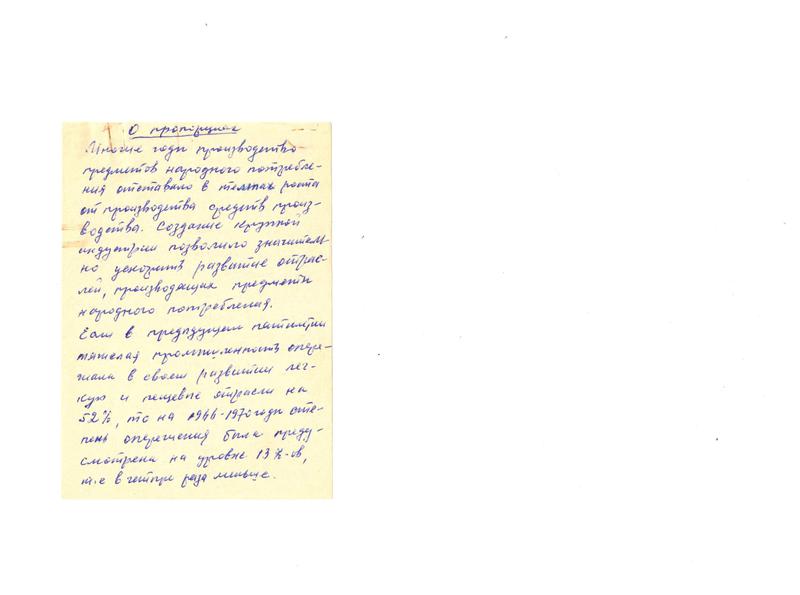 О пропорциях
Многие годы производство
предметов народного потребле-
ния отставало в темпах роста
от производства средств произ-
водства. Создание крупной
индустрии позволило значитель-
но ускорить развитие отрас-
лей, производящих предметы
народного потребления.
Если в предыдущем пятилетии
тяжелая промышленность опере-
жала в своем развитии лег-
кую и пищевые отрасли на
52%, то на 1966-1970 годы сте-
пень опережения была преду-
смотрена на уровне 13%-ов,
т.е в четыре раза меньше.